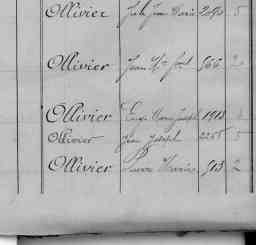 Ollivier Jean Marie 2090 5
Ollivier Jean 966
Ollivier Joseph 1913
Ollivier Jean Joseph 2255 5
Ollivier Pierre Marie 913 2